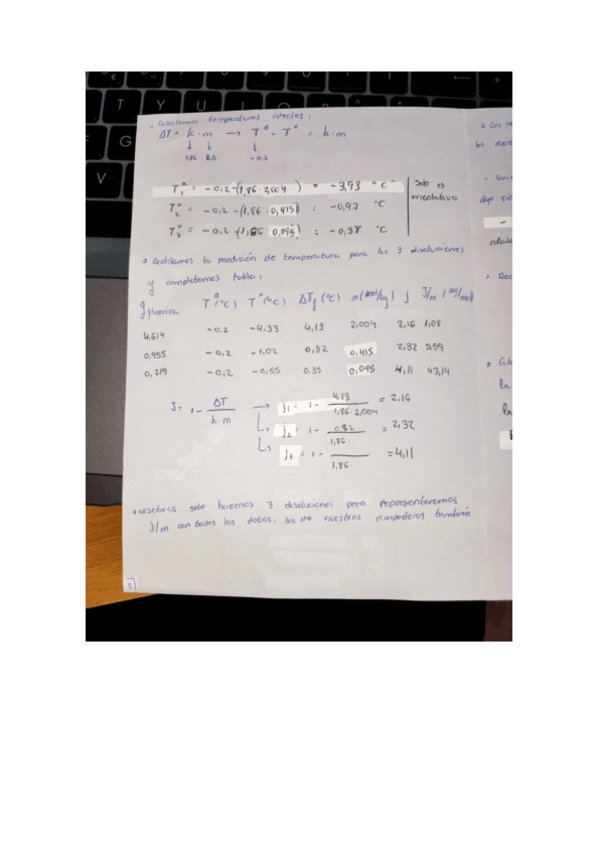 T Y U
G
V B
• Calculamos temperaturas rotacles:
ΔT = k·m → Tᵈ - Tˣ = k·m
↓ ↓ ↓
1,86 -0,2
T₁ˣ = -0,2 -(1,86 · 2,004) = -3,93 °C
T₂ˣ = -0,2 -(1,86 · 0,415) = -0,97 °C
T₃ˣ = -0,2 -(1,86 · 0,095) = -0,38 °C
Solo es
orientativo
• Realizamos la medición de temperatura para las 3 disoluciones
y completamos tabla:
g glicerina Tᵈ(°C) Tˣ(°C) ΔTf (°C) m(mol/kg) j J/m (kg/mol)
4,614 -0,2 -4,33 4,13 2,004 2,16 1,08
0,955 -0,2 -1,02 0,82 0,415 2,32 5,59
0,219 -0,2 -0,55 0,35 0,095 4,11 43,14
J = 1 - ΔT / k·m → j₁ = 1 - 4,13 / 1,86 · 2,004 = 2,16
↳ j₂ = 1 - 0,82 / 1,86· = 2,32
↳ j₃ = 1 - / 1,86· = 4,11
• Nosotros solo haremos 3 disoluciones pero representaremos
J/m con todos los datos, los de nuestros compañeros también
2